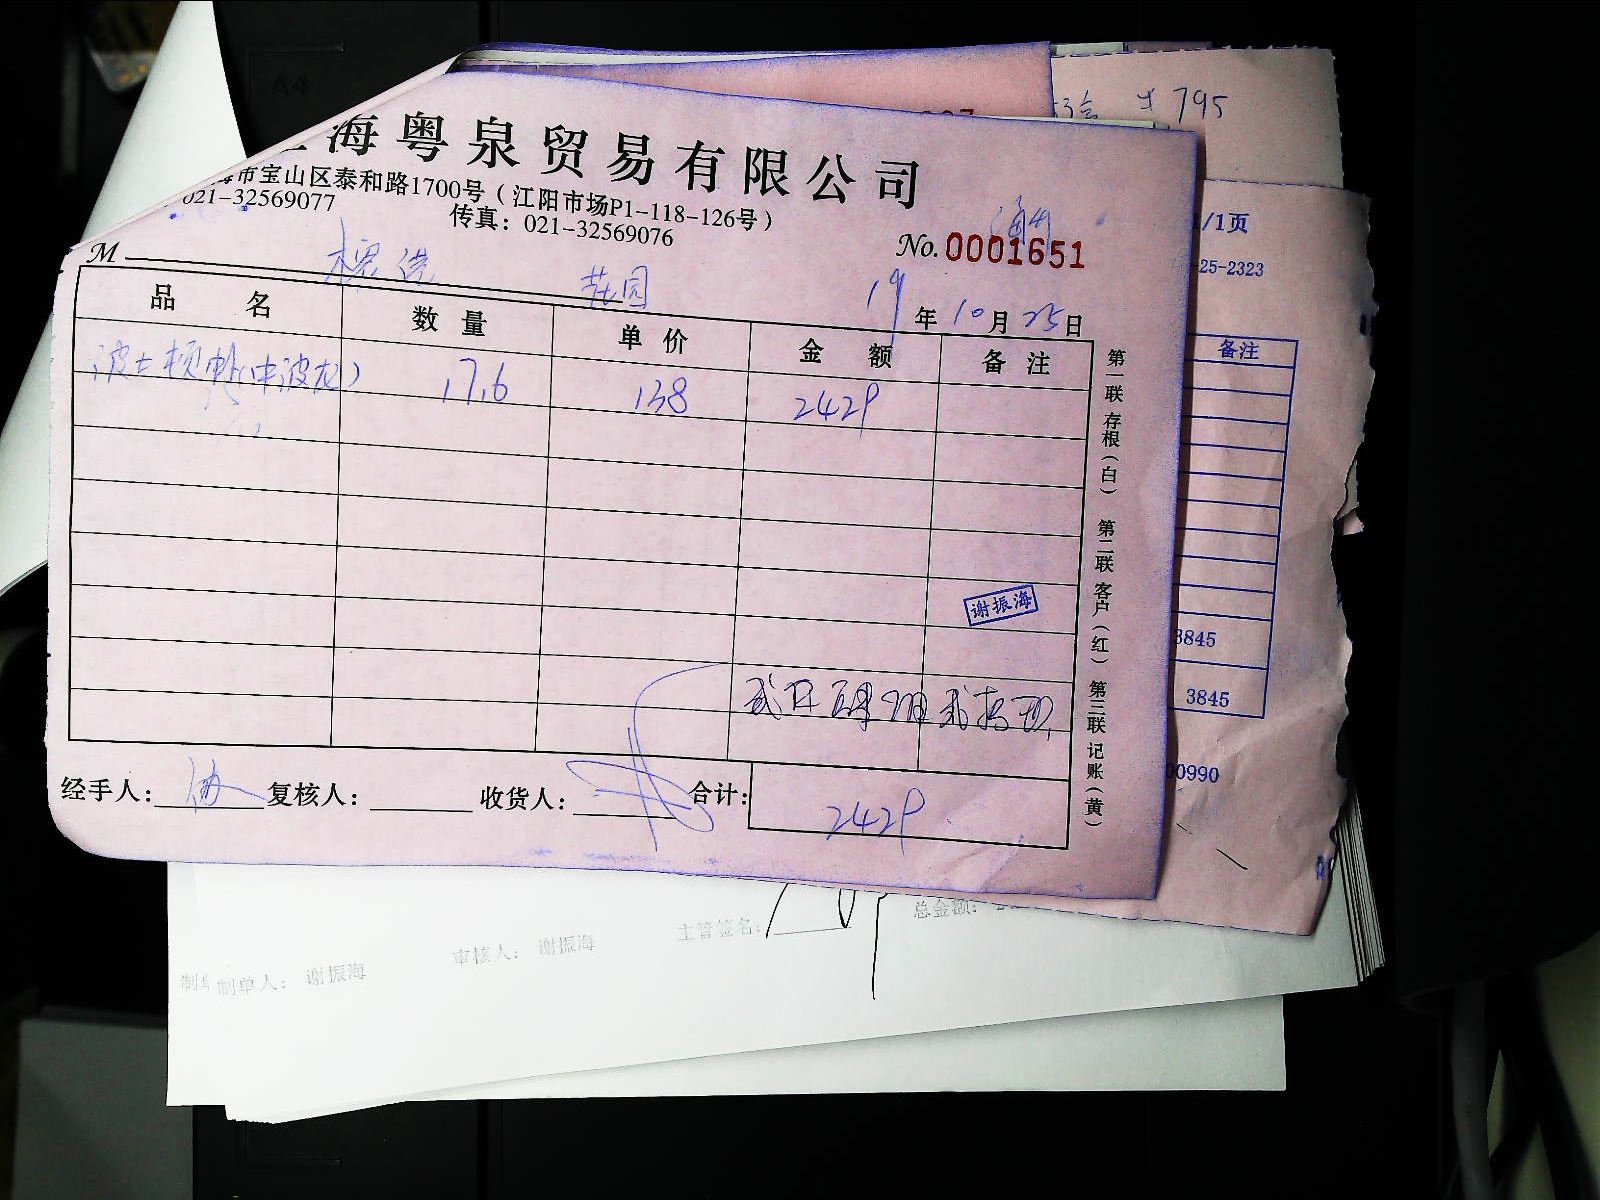 海粤泉贸易有限公司
市宝山区泰和路1700号（江阳市场P1-118-126号）
021-32569077
传真：021-32569076
No. 0001651
M 花园
19年10月25日
品名 数量 单价 金额 备注
波士顿（中波龙） 17.6 138 2429
谢振海
经手人： 复核人： 收货人： 合计：2429
第一联 存根（白） 第二联 客户（红） 第三联 记账（黄）
795
1/1页
-25-2323
备注
3845
3845
00990
总金额：
主管签名：
审核人：谢振海
制单人：谢振海